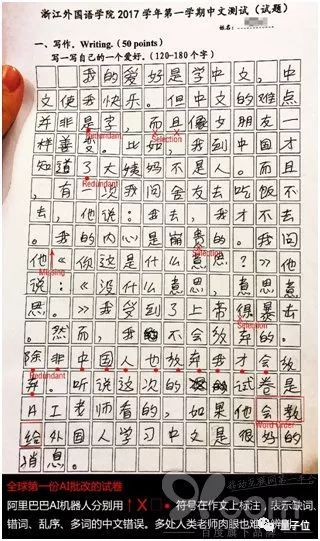 浙江外国语学院 2017 学年第一学期中文测试（试题）
一、写作。Writing.（50 points）
写一写自己的一个爱好。（120-180 个字）
我的爱好是学中文，中
文使我快乐。但中文的难点
并非是字，而且像女朋友一
Redundant
样善变。比如，我到中国才
知道了大姨妈不是人。而且
Redundant
，有一次我问舍友去吃饭不
去，他说：我去，我才不去
。我的内心是崩贵的。我问
Selection
Missing
他《你这是什么意思？》他
说：《没什么意思，意思意
思。》我受到了上帝很暴击
Selection
。然而，我不会放弃的。
除非中国人也放弃我才会放
Redundant
弃。听说这次的试卷是
AI老师看的，如果他会教
Word Order
给外国人学习中文是很好的
消息。
全球第一份AI批改的试卷
阿里巴巴AI机器人分别用 ↑ X □ • 符号在作文上标注，表示缺词、
错词、乱序、多词的中文错误。多处人类老师肉眼也难辨别
量子位